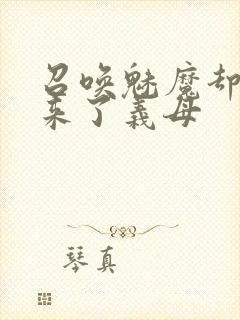 召唤魅魔却
来了義母
琴真